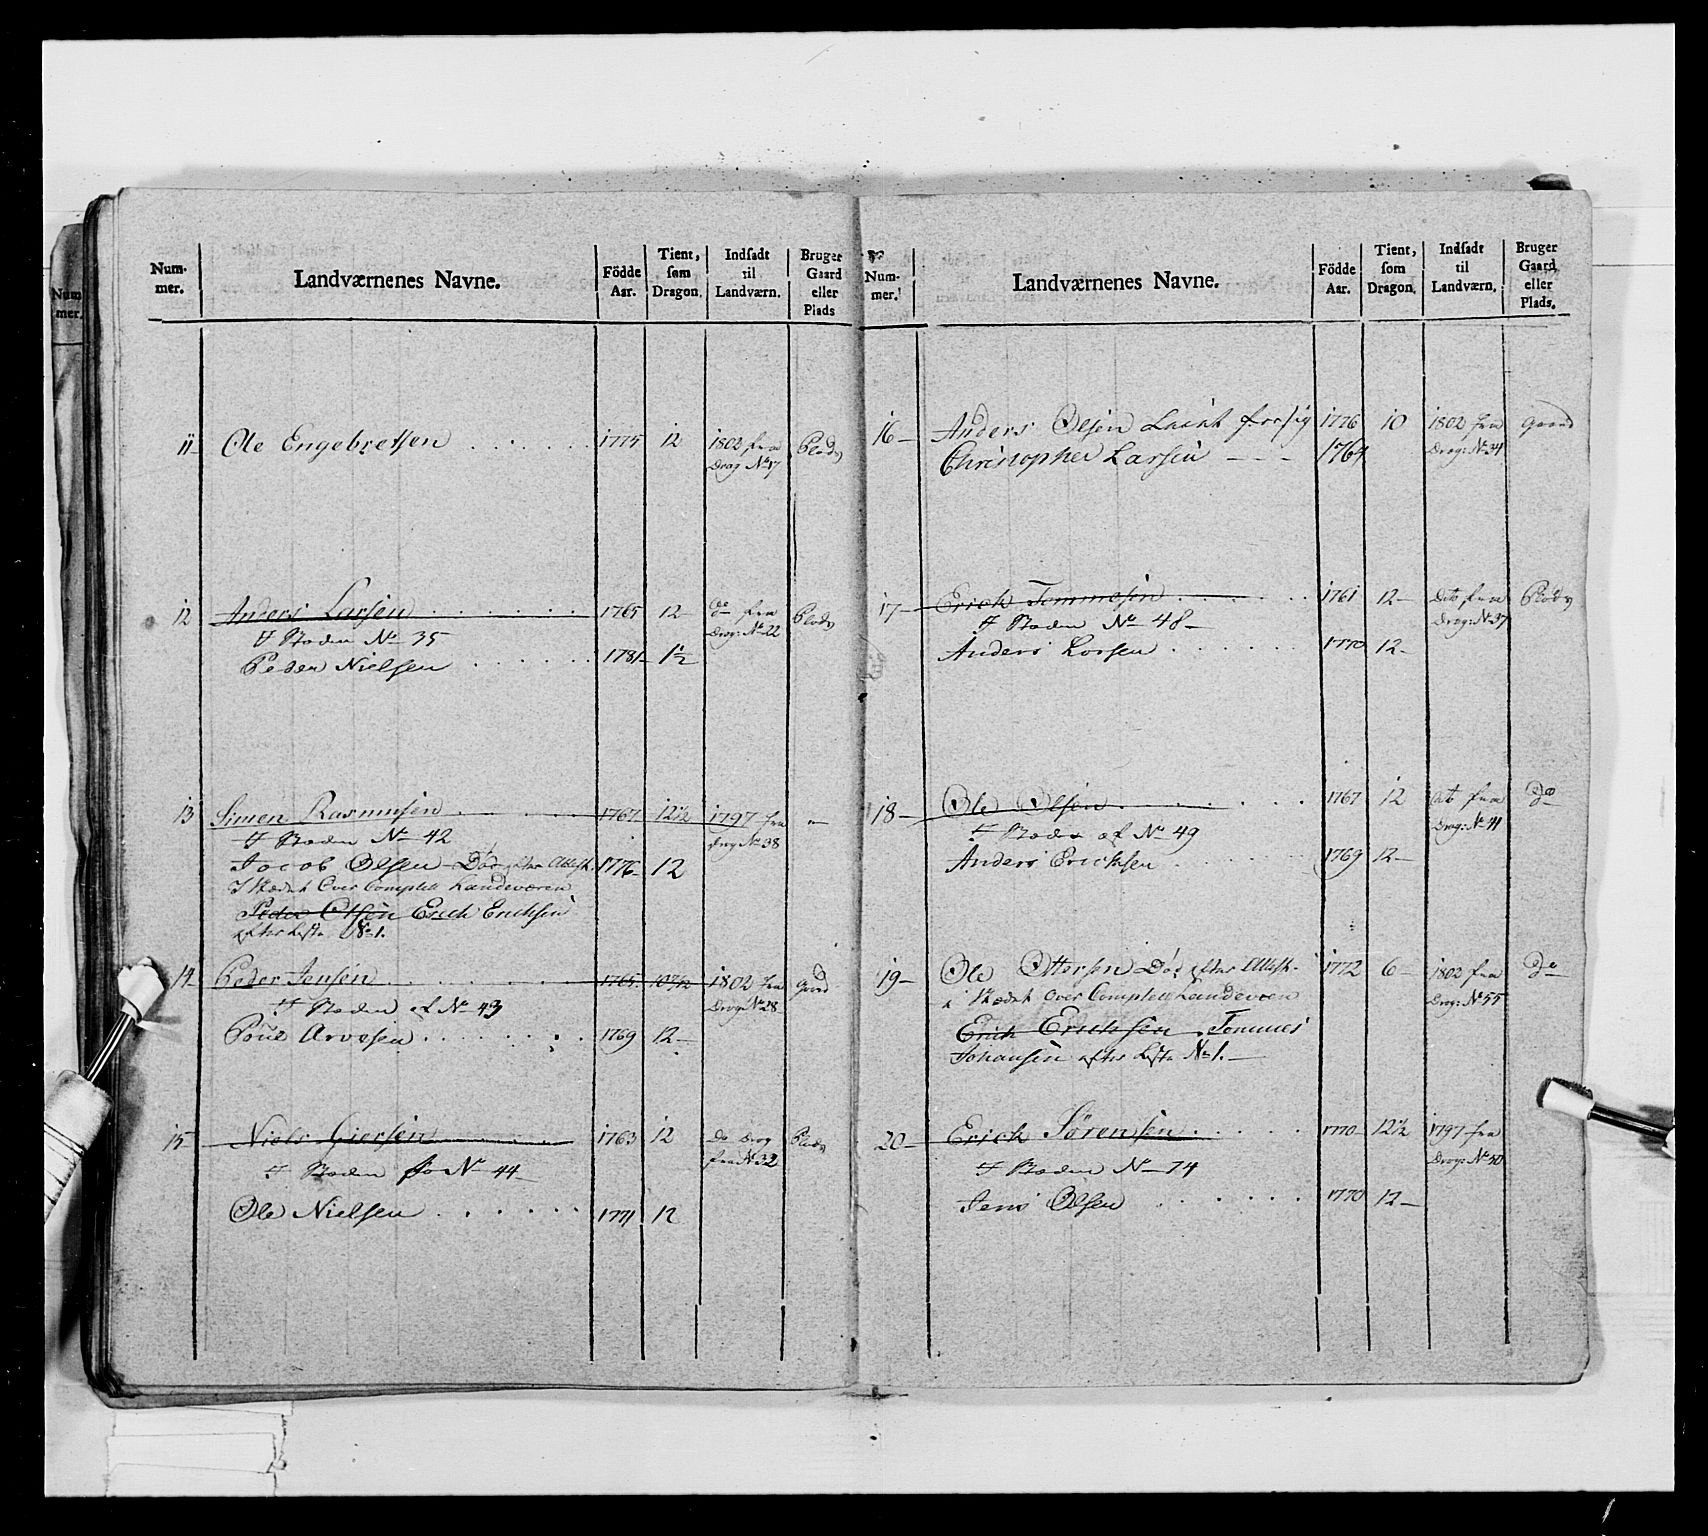 Num-
mer.
Num-
mer.
Landværnenes Navne.
Födde
Aar.
Tient,
som
Dragon.
Indsadt
til
Landværn.
Bruger
Gaard
eller
Plads
11- Ole Engebretsen 1775 12 1802 fra Plads
Drag No 17
12 Anders Larsen 1765 12- do fra Plads
Staden No 35 Drag: No 22
Peder Nielsen 1781- 1½
13 Simen Rasmusen 1767 12½ 1797 fra "
Staden No 42 Drag No 38
Jacob Olsen Död efter Attest. 1776- 12
I Stædet Over Complett Landeværen
Peder Olsen Erich Erichsen
efter Liste No 1.
14- Peder Jensen 1765 10 1802 fra Gaard
Staden af No 43 Drag: No 28
Poul Arvesen 1769 12-
15- Niels Giersen 1763 12 Do Drag Plads
Staden No 44- fra No 32
Ole Nielsen 1771 12
Num-
mer.
Landværnenes Navne.
Födde
Aar.
Tient,
som
Dragon.
Indsadt
til
Landværn.
Bruger
Gaard
eller
Plads.
16- Anders Olsen 1776 10 1802 fra Gaard
Christopher Larsen 1764 Drag: No 34
17- Erich Tommesen 1761 12- Dito fra Plads
Staden No 48- Drag: No 37
Anders Larsen 1770 12-
18- Ole Olsen 1767 12 Dito fra do
af No 49 Drag: No 41
Anders Erichsen 1769 12-
19- Ole Ottersen Död efter Attest- 1772 6- 1802 fra do
i Stædet Over Complett Landeværn Drag: No 55
Erich Erichsen Tommes
Johansen efter Liste No 1.-
20- Erich Sörensen 1770- 12½ 1797 fra
Staden No 74 Drag: No 50
Jens Olsen 1770 12-